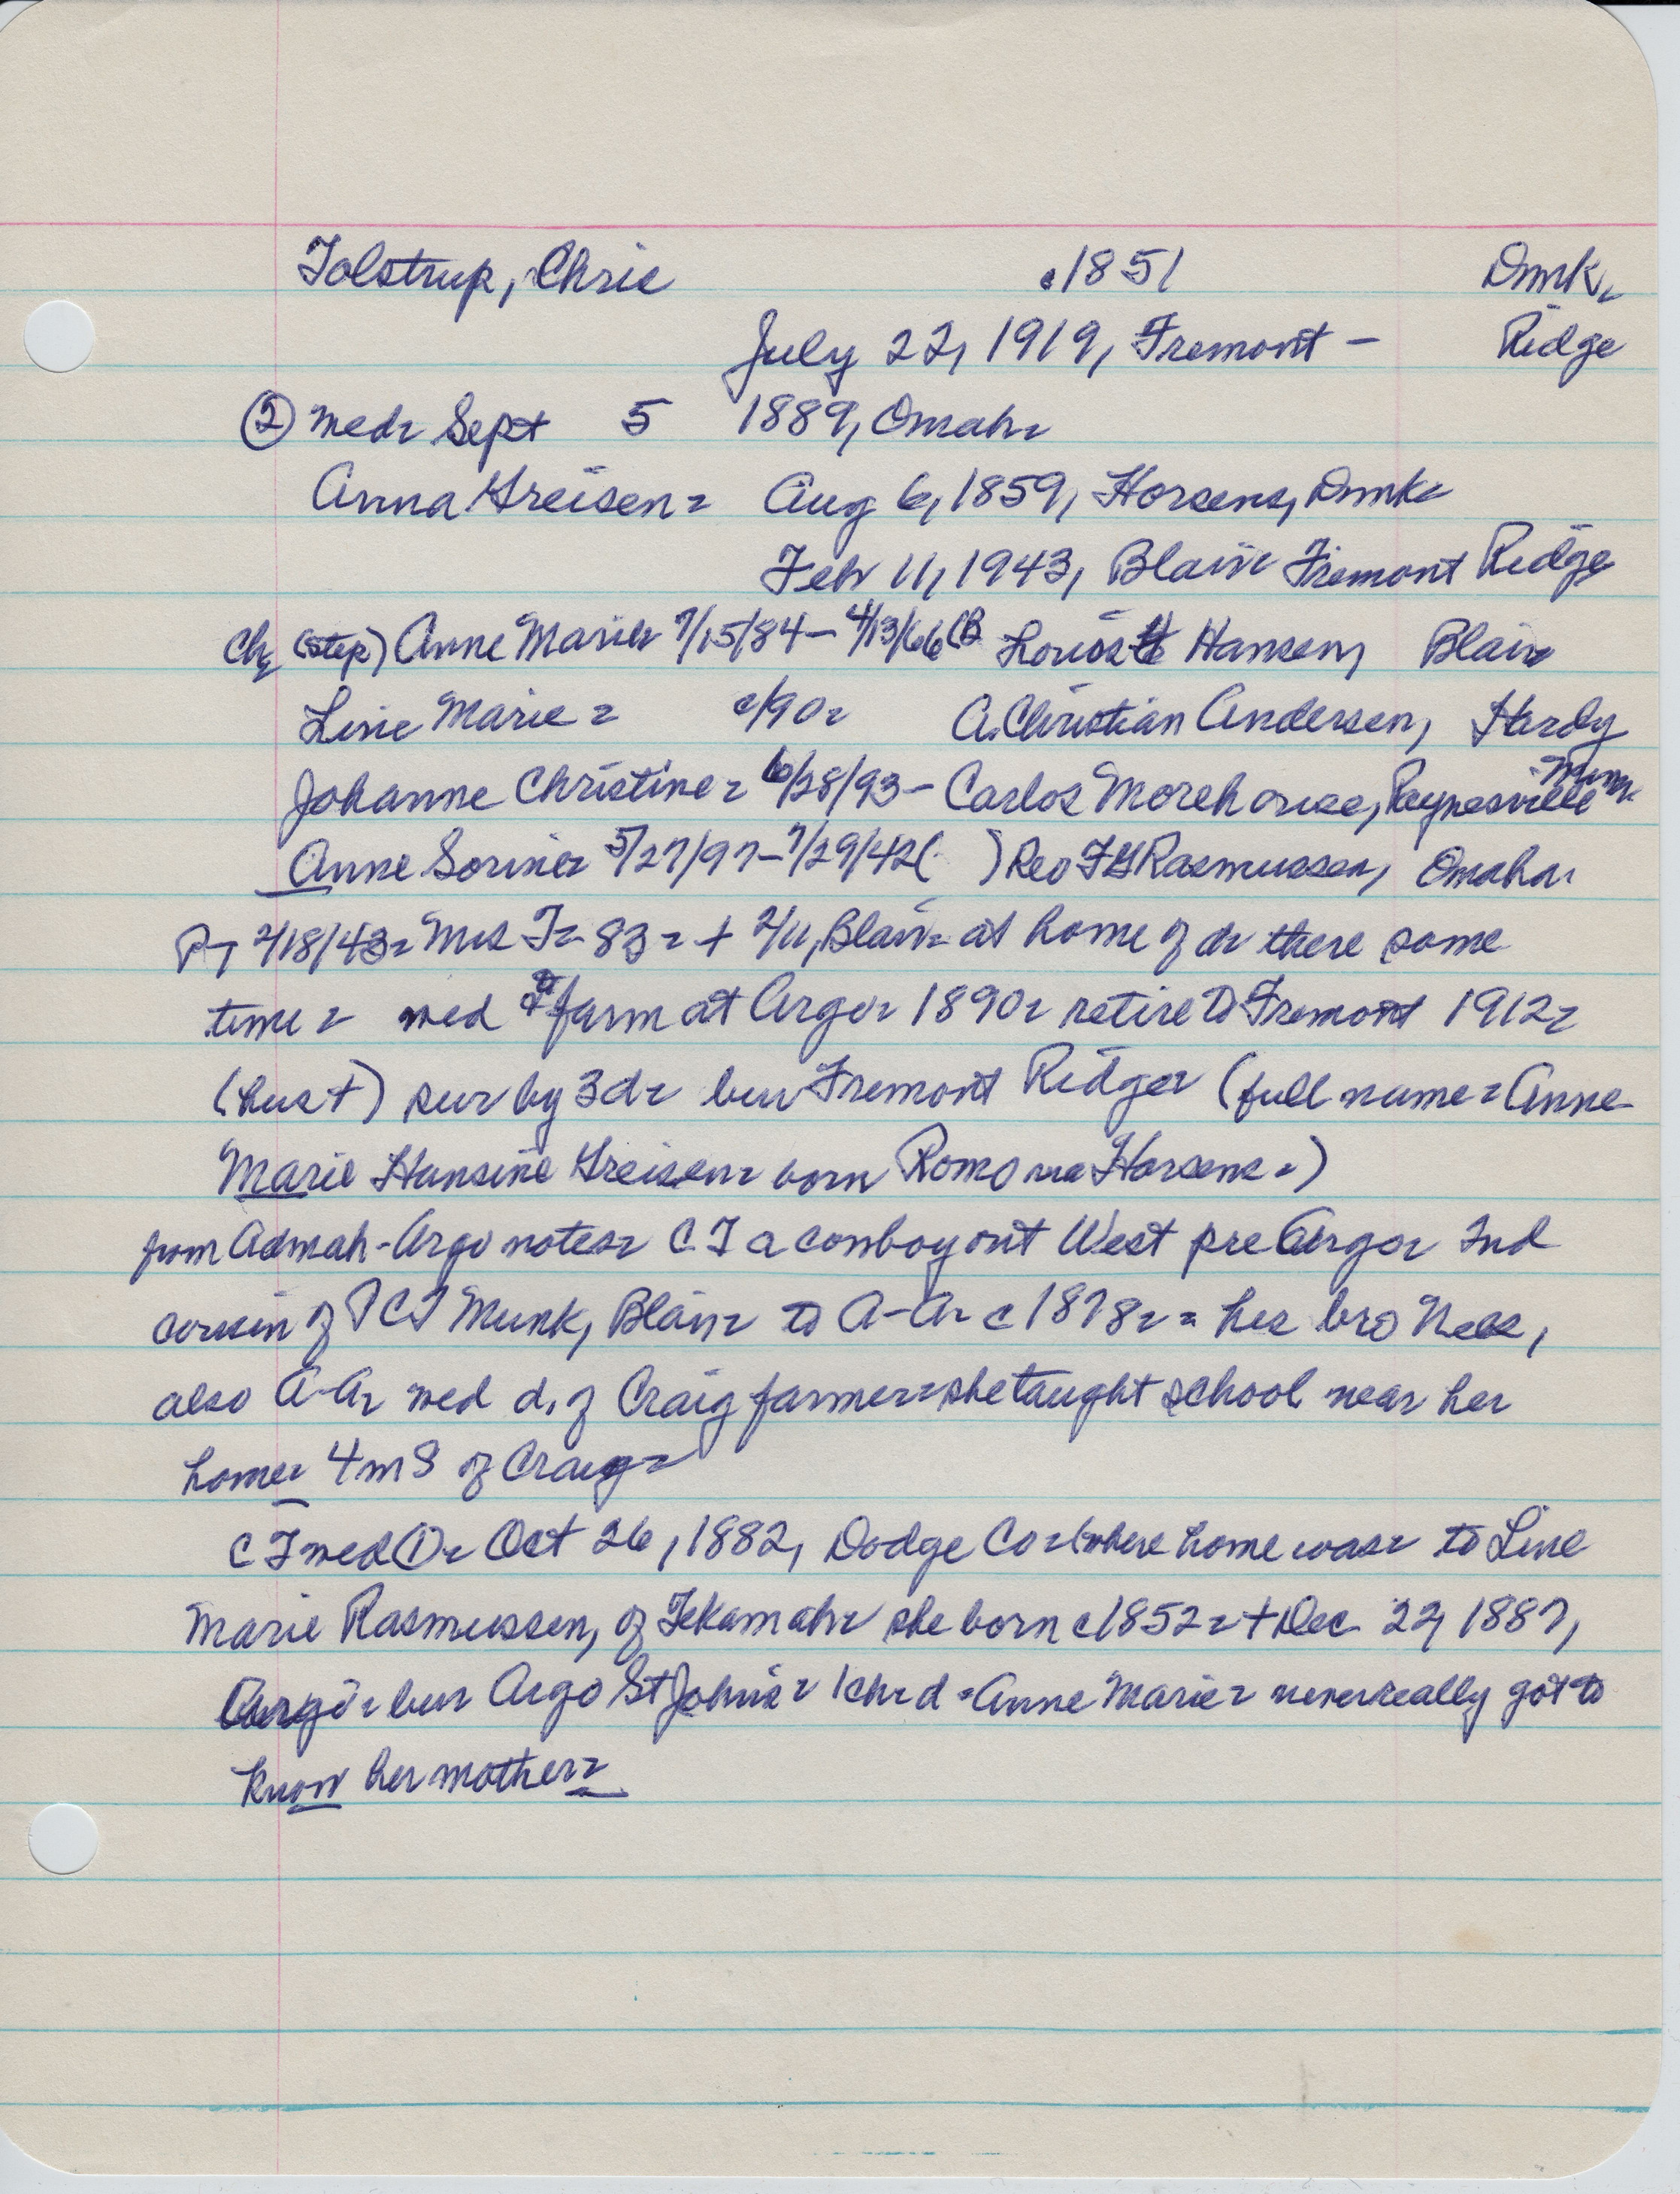 Tolstrup, Chris c1851 Dmk,
July 22, 1919, Fremont - Ridge
② med. Sept 5 1889, Omaha
Anna Greisen. Aug 6, 1859, Horsens, Dmk
Feb 11, 1943, Blair. Fremont Ridge
Ch, (step) Anne Marie. 7/15/84 - 4/13/66 (B Louis H Hansen, Blair
Line Marie. c/90. A. Christian Andersen, Hardy
Johanne Christine. 6/28/93 - Carlos Morehouse, Paynesville Minn.
Anne Sorine. 5/27/97 - 7/29/42 ( ) Rev F G Rasmussen, Omaha.
P, 2/18/43. Mrs T. 83. + 2/11, Blair. at home of d. there some
time. med farm at Argo. 1890. retire to Fremont 1912.
(hus +) sur by 3 d. bur Fremont Ridge. (full name. Anne
Marie Hansine Greisen. born Romo Horsens.)
from Admah-Argo notes. C T a cowboy out West pre Argo. 2nd
cousin of P C T Munk, Blair. to A-A. c 1878. . his bro Nels,
also A-A. med d. of Craig farmer. she taught school near her
home. 4 m S of Craig.
C T med ①. Oct 26, 1882, Dodge Co. (where home was. to Line
Marie Rasmussen, of Tekamah. she born c1852. + Dec 22, 1887,
Argo. bur Argo St John's. 1 ch. d. Anne Marie. never really got to
know her mother.